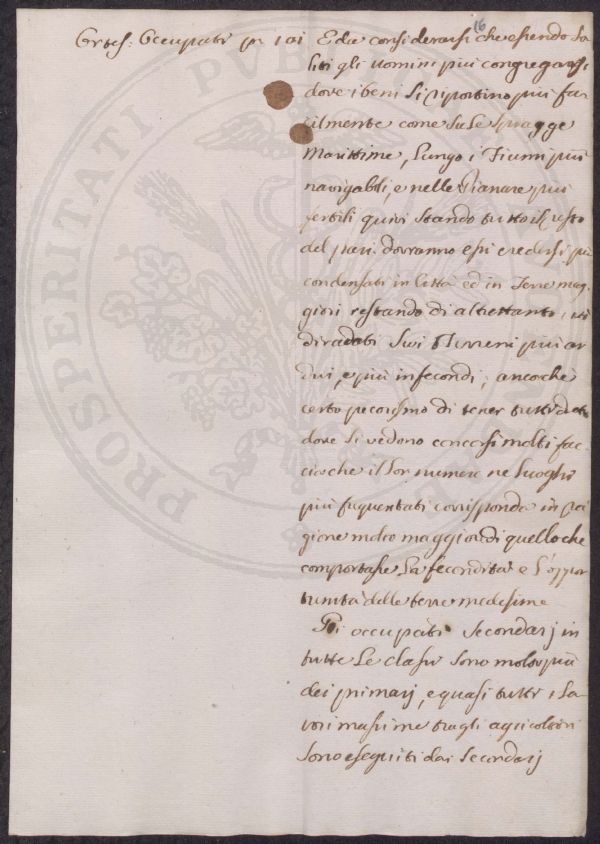 16
Ortes: Occupati p. 101 E da considerarsi che essendo so
liti gli uomini più congregarsi
dove i beni si riportino più fa
cilmente come su le spiagge
Marittime, lungo i Fiumi più
navigabili, e nelle Pianure più
fertili quivi stando tutto il resto
del pari dovranno essi credersi più
condensati in Città ed in Terre mag
giori restando di altrettanto
diradati sui Terreni più ar
dui, e più infecondi; ancorchè
certo pecorismo di tener tutti
dove si vedono concorsi molti fac
cia che il lor numero ne luoghi
più frequentati corrisponda in ra
gione molto maggior di quello che
comportasse la fecondità e l'oppor
tunità delle terre medesime
Gli occupati secondarj in
tutte le classi sono molto più
dei primarj, e quasi tutti i la
vori massime tragli agricoltori
sono eseguiti dai secondarj
PROSPERITATI PUBLICAE